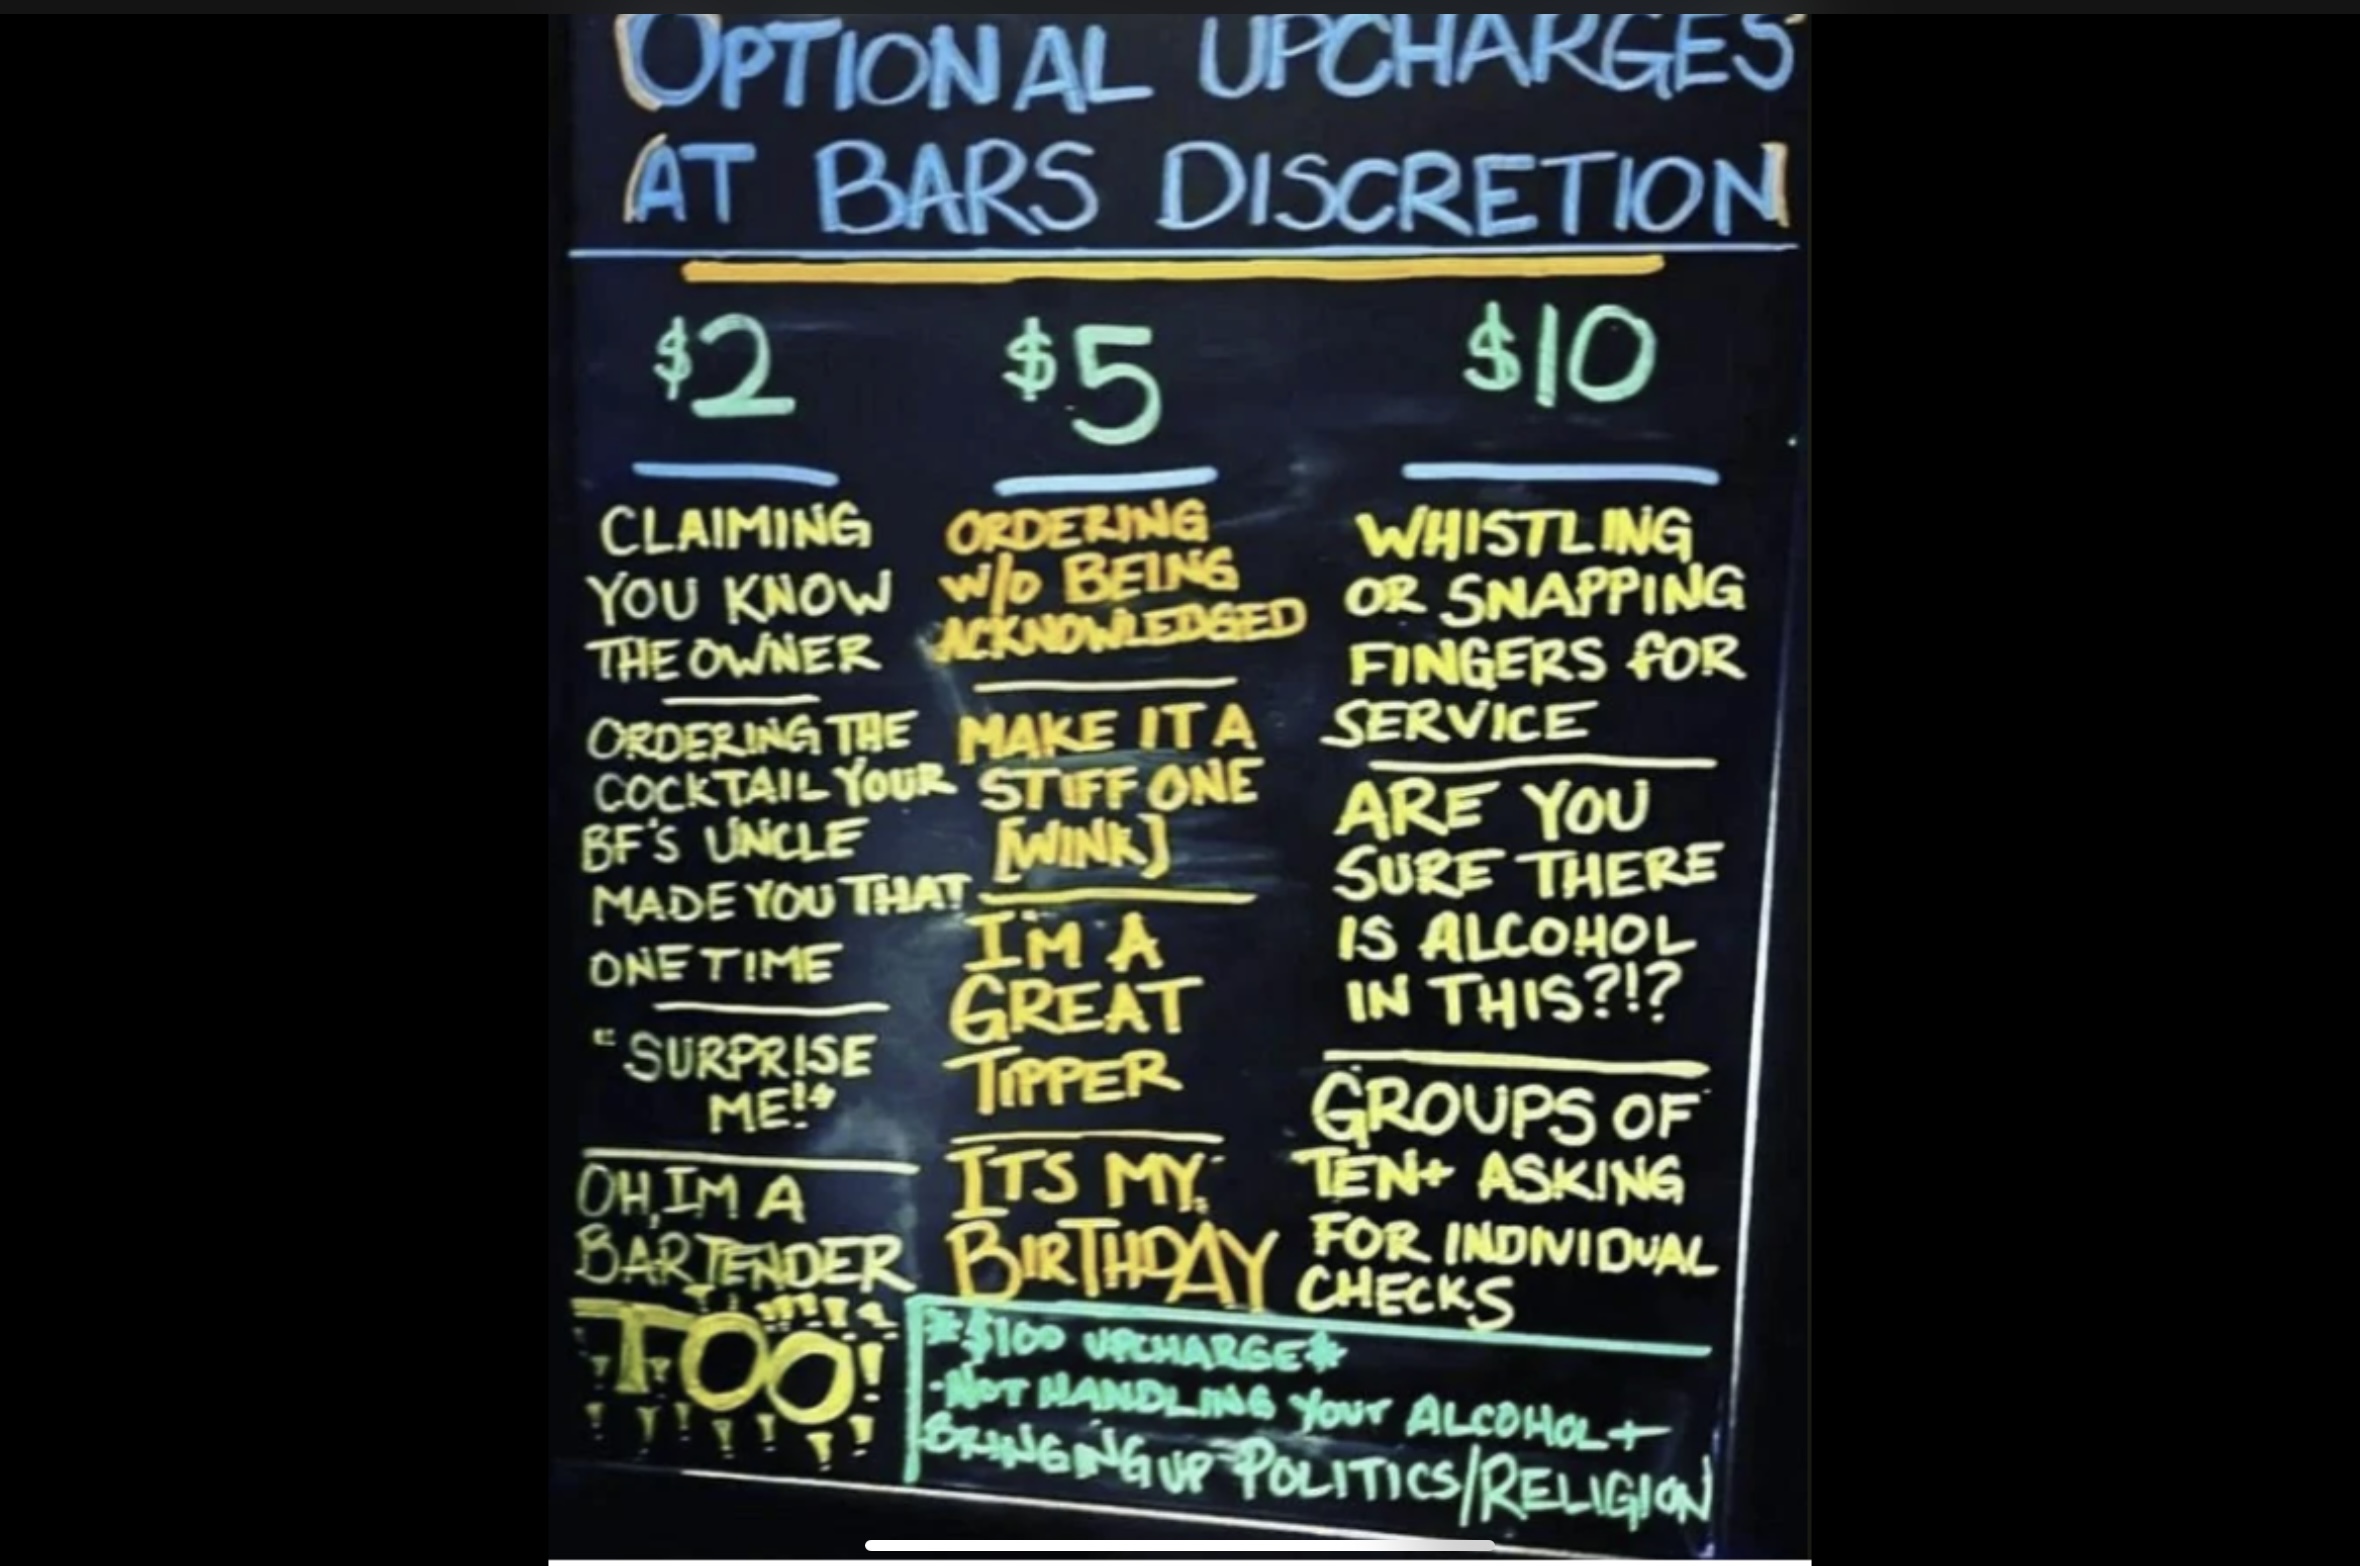 OPTIONAL UPCHARGES
AT BARS DISCRETION
$2
CLAIMING
YOU KNOW
THE OWNER
ORDERING THE
COCKTAIL YOUR
BF'S UNCLE
MADE YOU THAT
ONE TIME
"SURPRISE
ME!"
OH, IM A
BARTENDER
TOO!
$5
ORDERING
W/O BEING
ACKNOWLEDGED
MAKE IT A
STIFF ONE
[WINK]
I'M A
GREAT
TIPPER
ITS MY
BIRTHDAY
$10
WHISTLING
OR SNAPPING
FINGERS FOR
SERVICE
ARE YOU
SURE THERE
IS ALCOHOL
IN THIS?!?
GROUPS OF
TEN+ ASKING
FOR INDIVIDUAL
CHECKS
*$100 UPCHARGE*
-NOT HANDLING YOUR ALCOHOL +
BRINGING UP POLITICS/RELIGION